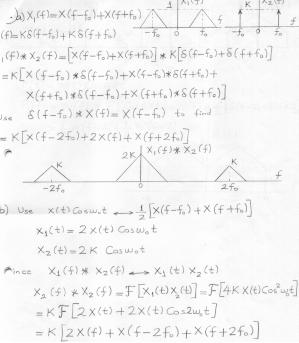 a) X₁(f)=X(f-f₀)+X(f+f₀)
1 X₁(f) -f₀ 0 f₀ f K X₂(f) -f₀ 0 f₀
(f)=Kδ(f-f₀)+Kδ(f+f₀)
₁(f)*X₂(f)=[X(f-f₀)+X(f+f₀)]*K[δ(f-f₀)+δ(f+f₀)]
=K[X(f-f₀)*δ(f-f₀)+X(f-f₀)*δ(f+f₀)+
X(f+f₀)*δ(f-f₀)+X(f+f₀)*δ(f+f₀)]
Use δ(f-f₀)*X(f)=X(f-f₀) to find
=K[X(f-2f₀)+2X(f)+X(f+2f₀)]
K 2K X₁(f)*X₂(f) K f
-2f₀ 0 2f₀
b) Use x(t)Cosω₀t ⟷ 1/2[X(f-f₀)+X(f+f₀)]
x₁(t)=2x(t)Cosω₀t
x₂(t)=2K Cosω₀t
Since X₁(f)*X₂(f)⟷x₁(t)x₂(t)
X₂(f)*X₂(f)=F[x₁(t)x₂(t)]=F[4Kx(t)Cos²ω₀t]
=KF[2x(t)+2x(t)Cos2ω₀t]
=K[2X(f)+X(f-2f₀)+X(f+2f₀)]